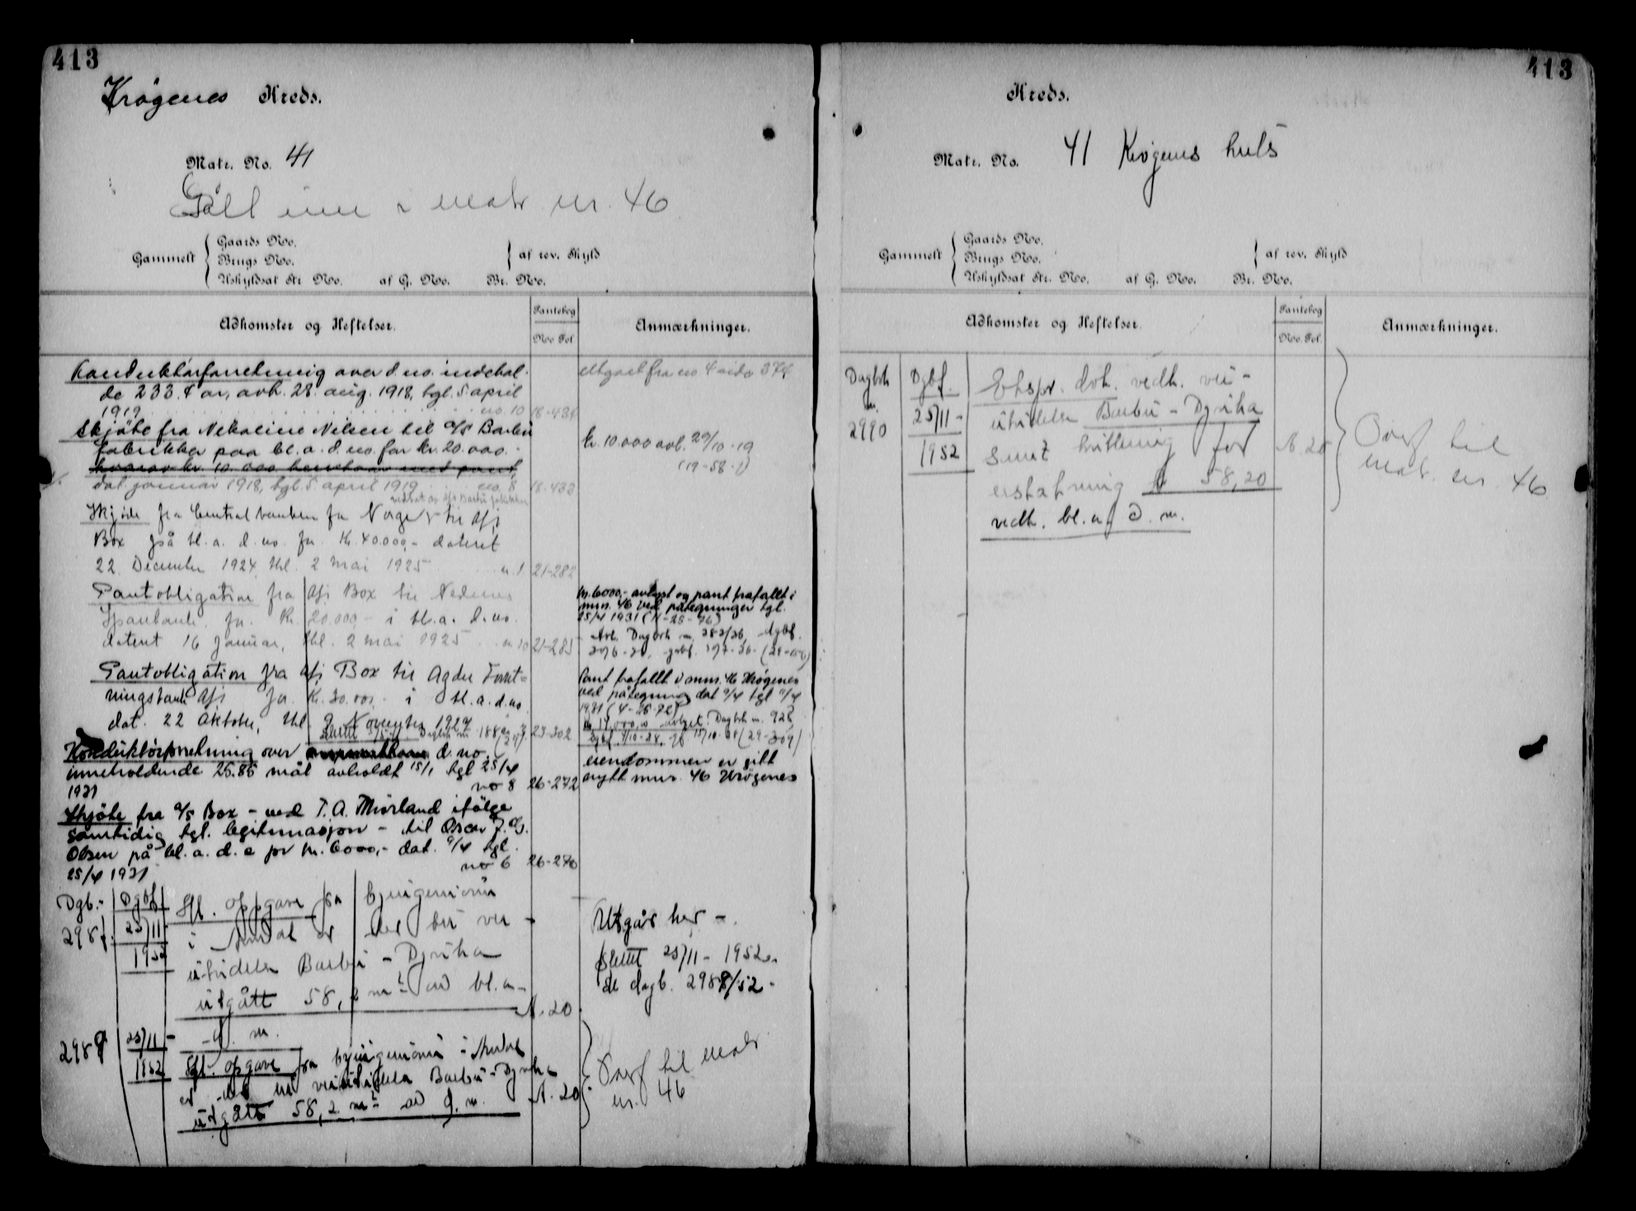 413
Krøgenes Kreds.
Matr. No. 41
Gått inn i matr nr. 46
Gammelt
Gaards No.
Brugs No.
Uskyldsat Str. No. af G. No. Br. No.
af rev. Skyld
Adkomster og Heftelser.
Pantebog
No. Fol.
Anmærkninger.
Konduktørforretning over d. no. indehol-
de 233.4 ar, avh. 28. aug. 1918, tgl. 5 april
1919 no. 10 18-431
Utgaat fra no 4 side 374
Skjøte fra Nekoline Nilsen til A/S Barbu
fabrikker paa bl. a. d. no. for kr. 20.000.-
hvorav kr. 10.000 berostaar med pant
dat januar 1918, tgl. 5 april 1919 no. 8 18-433
kr. 10.000 avl. 29/10-19
(19-58-1)
Skjøte fra Centralbanken for Norge til A/S
Box på bl. a. d. no. for kr. 40.000,- datert
22 December 1924 thl. 2 mai 1925 n. 1 21-282
Pantobligation fra A/S Box til Nedenes
Sparebank for kr. 20.000,- i bl. a. d. no.
datert 16 januar, thl. 2 mai 1925 n. 10 21-285
kr. 6000,- avlyst og pant frafallt i
mnr. 46 ved påtegninger tgl.
25/4 1931
Pantobligation fra A/S Box til Agder Forret-
ningsbank A/S for kr. 30.000,- i bl. a. d. no.
dat. 22 Oktober, thl. 2 November 1927 23-302
Pant frafallt i mnr. 46 Krøgenes
ved påtegning dat 9/4 tgl 11/4
1931
Konduktørforretning over d. no.
inneholdende 25.86 mål avholdt 15/1 tgl 25/4
1931 no 8 26-272
eiendommen er gitt
nytt mnr. 46 Krøgenes
Skjøte fra A/S Box - ved T. A. Mørland ifølge
samtidig tgl. legitimasjon - til Oscar J.
Olsen på bl. a. d. e for kr. 6000,- dat. 9/4 tgl.
25/4 1931 no 6 26-270
Dgb.- Dgbf. Tgl. oppgave fra byingeniøren
298 25/11 i Arendal er det ved vei-
1952 utvidelsen Barbu - Dyvika
utgått 58,2 m² av bl. a.
d. n. A. 20
Utgår her -.
slettet 25/11 - 1952 -
se dagb. 2989/52 -
2989 25/11 - Tgl. opgave fra byingeniøren i Arendal
1952 er det ved veiutvidelsen Barbu - Dyvika
utgått 58,2 m² av d. n. A. 20
Overf til matr
nr. 46
413
Kreds.
Matr. No. 41 Krøgenes krets
Gammelt
Gaards No.
Brugs No.
Uskyldsat Str. No. af G. No. Br. No.
af rev. Skyld
Adkomster og Heftelser.
Pantebog
No. Fol.
Anmærkninger.
Dagbok Dgbf. Ekspr. dok. vedk. vei-
nr. 25/11 - utvidelsen Barbu - Dyvika
2990 1952 samt kvittering for A. 20
erstatning kr 58,20
vedk. bl. a. d. n.
Overf til
matr. nr. 46